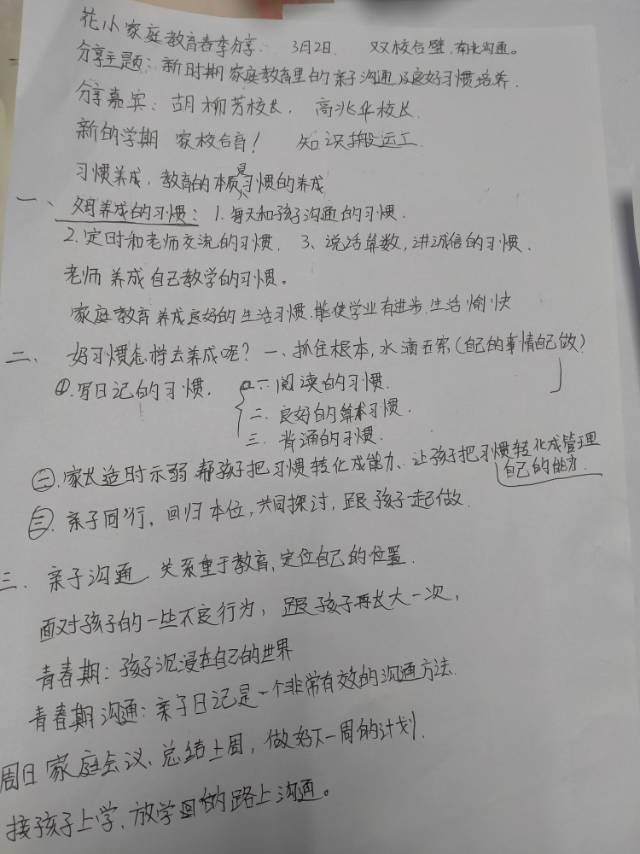 花小家庭教育春季分享. 3月2日. 双校合璧.有此沟通。
分享主题:新时期家庭教育里的亲子沟通及良好习惯培养.
分享嘉宾:胡柳芳校长, 高兆华校长.
新的学期 家校合育! 知识搬运工.
习惯养成,教育的本质是习惯的养成
一、父母养成的习惯:1.每天和孩子沟通的习惯.
2.定时和老师交流的习惯. 3、说话算数,讲诚信的习惯.
老师养成自己教学的习惯。
家庭教育养成良好的生活习惯.能使学业有进步.生活愉快
二、好习惯怎样去养成呢?一、抓住根本,水滴石穿(自己的事情自己做)
①.写日记的习惯. 一:阅读的习惯.
二.良好的算术习惯.
三.普通的习惯.
㊁.家长适时示弱 帮孩子把习惯转化成能力、让孩子把习惯转化成管理
自己的能力.
㊂.亲子同行,回归本位,共同探讨,跟孩子一起做.
三.亲子沟通 关系重于教育,定位自己的位置.
面对孩子的一些不良行为,跟孩子再长大一次,
青春期:孩子沉浸在自己的世界
青春期沟通:亲子日记是一个非常有效的沟通方法.
周日家庭会议、总结上周,做好下一周的计划.
接孩子上学、放学回的路上沟通。